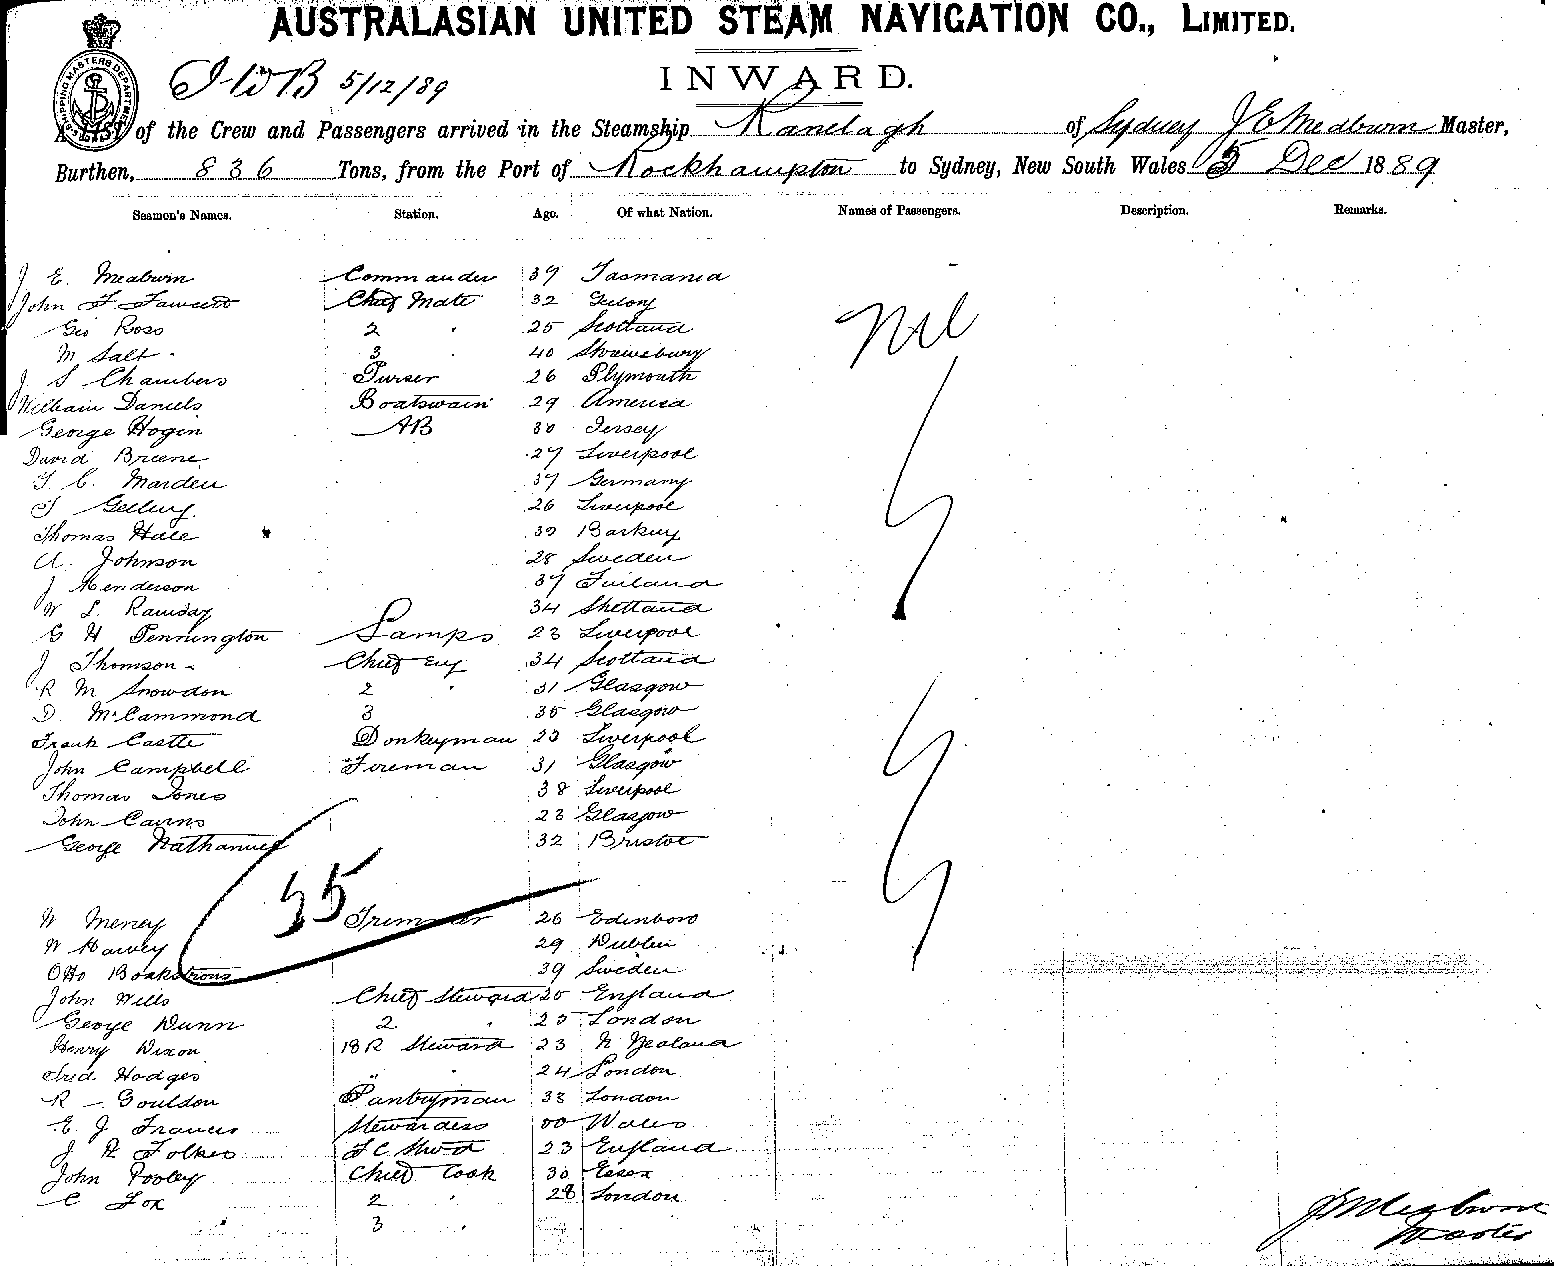 AUSTRALASIAN UNITED STEAM NAVIGATION CO., LIMITED.
SHIPPING MASTERS DEPARTMENT
5/12/89
INWARD.
A LIST of the Crew and Passengers arrived in the Steamship Ranelagh of Sydney J E Meaburn Master,
Burthen, 836 Tons, from the Port of Rockhampton to Sydney, New South Wales 5 Dec 1889
Seamen's Names. Station. Age. Of what Nation. Names of Passengers. Description. Remarks.
J E. Meaburn Commander 37 Tasmania
John F. Fawcett Chief Mate 32
Nil
Geo Ross 2 " 25 Scotland
M Salt 3 " 40 Shrewsbury
J S Chambers Purser 26 Plymouth
William Daniels Boatswain 29 America
George Hogin AB 30 Jersey
David Breene 27 Liverpool
T. C. Marden 37 Germany
T 26 Liverpool
Thomas Hale
A. Johnson 28 Sweden
J Henderson 37 Finland
W S. Ramsay 34 Shetland
G H Pennington Lamps 23 Liverpool
J Thomson Chief Eng 34 Scotland
R M Snowdon 2 " 31 Glasgow
D. McCammond 3 35 Glasgow
Frank Castle Donkeyman 23 Liverpool
John Campbell Fireman 31 Glasgow
Thomas Jones 38 Liverpool
John Cairns 23 Glasgow
George Nathaniel 32 Bristol
35
W Mercey Trimmer 26 Edinboro
W Harvey 29 Dublin
Otto 39 Sweden
John Wills Chief Steward England
George Dunn 2 " London
Henry Dixon Steward 23 N Zealand
Fred Hodges " " 24 London
R - Gouldon Pantryman 33 London
E. J. Francis Stewardess 00 Wales
J. R Folkes 23 England
John Pooley Chief Cook 30 Essex
C Fox 2 " 28 London
3 "
J E Meaburn
Master